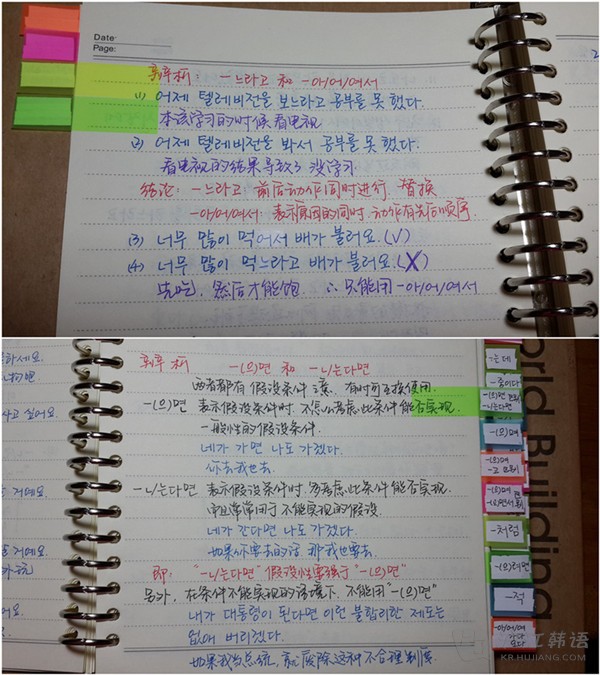 Date:
Page:
辨析: -느라고 和 -아/어/여서
(1) 어제 텔레비전을 보느라고 공부를 못 했다.
本该学习的时候看电视
(2) 어제 텔레비전을 봐서 공부를 못 했다.
看电视的结果导致了没学习
结论: -느라고 前后动作同时进行, 替换
-아/어/여서: 表示原因的同时, 动作有先后顺序
(3) 너무 많이 먹어서 배가 불러요.(√)
(4) 너무 많이 먹느라고 배가 불러요.(X)
先吃, 然后才能饱. ∴只能用 -아/어/여서
辨析 -(으)면 和 -ㄴ/는다면
两者都有假设条件 有时可互换使用.
-(으)면 表示假设条件时, 不怎么考虑此条件能否实现.
一般性的假设条件.
네가 가면 나도 가겠다.
你去我也去.
-ㄴ/는다면 表示假设条件时, 考虑此条件能否实现.
常用于不能实现的假设
네가 간다면 나도 가겠다.
如果你要去的话 那我也要去.
即: "-ㄴ/는다면" 假设性要强于 "-(으)면"
另外, 在条件不能实现的语境下, 不能用 "-(으)면"
내가 대통령이 된다면 이런 불합리한 제도는
없애 버리겠다.
如果我当总统, 就废除这种不合理制度.
하세요.
사고 싶어요.
-는데
-(으)면
-ㄴ/는다면
-(으)며
-(으)며
-처럼
-(으)려면
-적
-아/어/여
orld Building
沪江韩语
KR.HUJIANG.COM